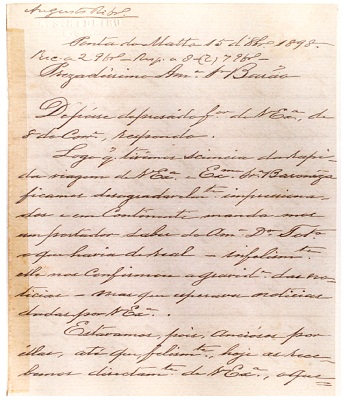 Augusto
Ponta do Matto 15 d 8bro 1898.
Rec. a 2 9bro - Resp. a 8 (?) 9bro -
Prezadissimo Amo. Sr. Barão
De posse da presada de V Exa. de
8 do Corre., respondo.
Logo q tivemos sciencia da rapi
da viagem de V Exa. e Exma. Sra. Baroneza
ficamos desagradavelmte. impressiona-
dos e em Continente mandamos
um portador saber do Am. Dr.
o que havia de real - infelizmte.
elle nos Confirmou a gravide. das no
ticias - mas que esperava noticias
dadas por V Exa.
Estavamos, pois, anciosos por
ellas, até que, felizmte., hoje as rece
bemos directamte. de V Exa., a que